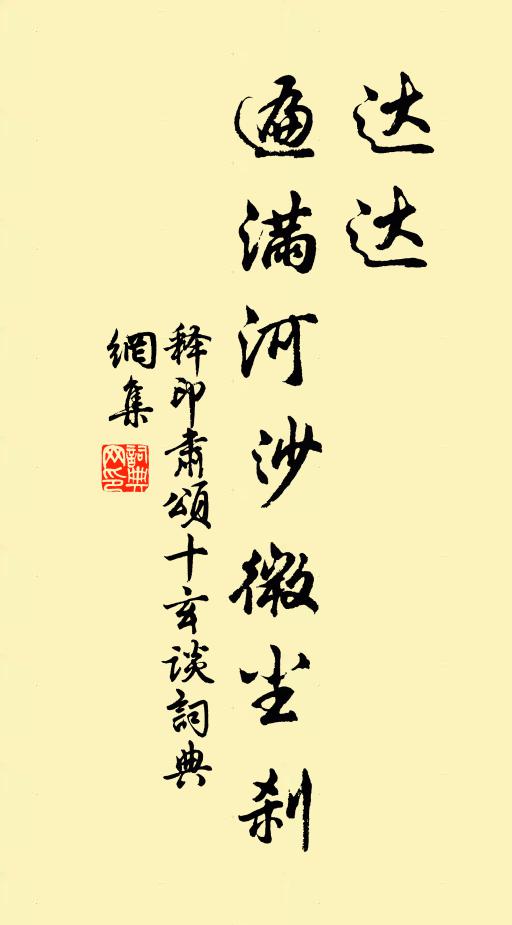 达达
遍满河沙微尘刹
释印肃颂十玄谈詞典
網集
詞典
网印